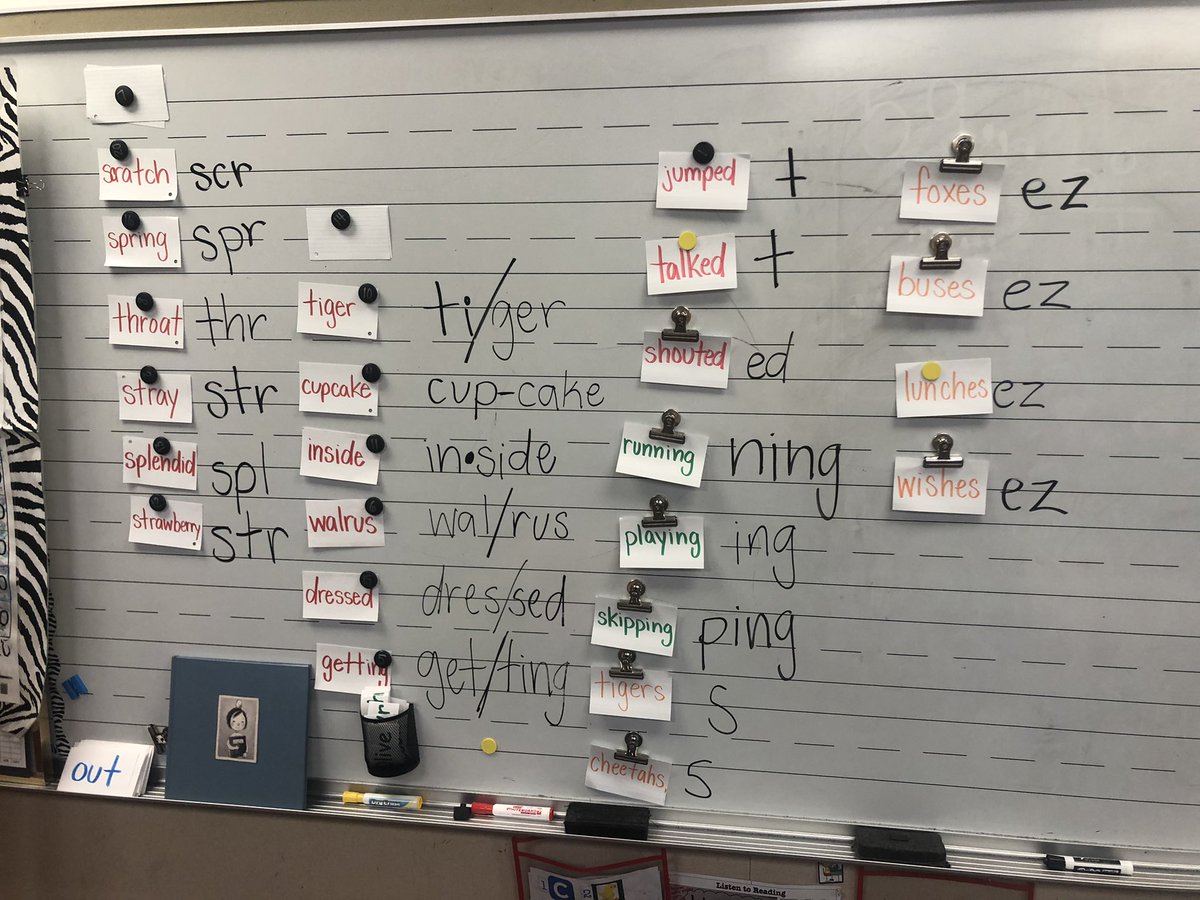 scratch scr
spring spr
throat thr
stray str
splendid spl
strawberry str
tiger ti/ger
cupcake cup-cake
inside in•side
walrus wal/rus
dressed dres/sed
getting get/ting
jumped t
talked t
shouted ed
running ning
playing ing
skipping ping
tigers s
cheetahs s
foxes ez
buses ez
lunches ez
wishes ez
out
live
C
Listen to Reading